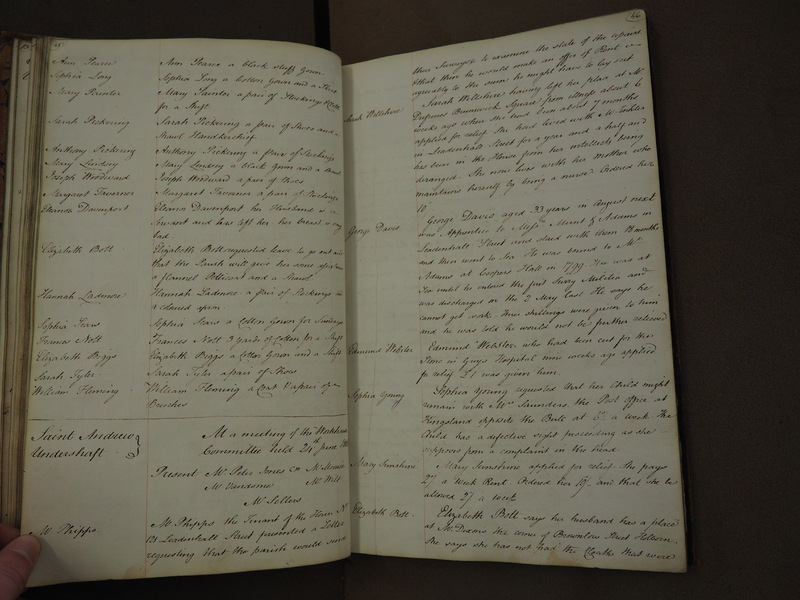 45
Ann Pearse Ann Pearse a black stuff Gown
Sophia Long Sophia Long a Cotton Gown and a Shift
Mary Painter Mary Painter a pair of Stockings &
for a Shift
Sarah Pickering Sarah Pickering a pair of Shoes and a
Shawl Handkerchief
Anthony Pickering Anthony Pickering a pair of Stockings
Mary Lindsey Mary Lindsey a black Gown and a
Joseph Woodward Joseph Woodward a pair of Shoes
Margaret Taverner Margaret Taverner a pair of Stockings
Eleanor Davenport Eleanor Davenport her Husband is a
Servant and has left her - her breast is very
bad
Elizabeth Bott Elizabeth Bott requested leave to go out and
that the Parish will give her some
a flannel Petticoat and a Shawl
Hannah Ladmore Hannah Ladmore a pair of Stockings and
a coloured apron
Sophia Sears Sophia Sears a Cotton Gown for Sundays
Frances Nott Frances Nott 3 yards of Cotton for a Shift
Elizabeth Biggs Elizabeth Biggs a Cotton Gown and a Shift
Sarah Tyler Sarah Tyler a pair of Shoes
William Fleming William Fleming a Coat & a pair of
Breeches
Saint Andrew
Undershaft
At a meeting of the Workhouse
Committee held 24th June
Present Mr Peter Jones Ch Mr
Mr Vandome Mr Witt
Mr Sellers
Mr Phipps Mr Phipps the Tenant of the House No
121 Leadenhall Street presented a Letter
requesting that the parish would send
46
their Surveyor to examine the state of the
that then he would make an offer of Rent
agreeably to the sum he might have to lay out
Sarah Wiltshire Sarah Wiltshire having left her place at Mr
Brunswick Square from illness about 6
weeks ago when she had been about 7 months
applied for relief. She had lived with Mr
in Leadenhall Street for a year and a half and
has been in the House from her intellects being
deranged. She now lives with her Mother who
maintains herself by being a nurse. Ordered her
10
George Davis George Davis aged 33 years in August next
was Apprentice to Messrs Munt & Adams in
Leadenhall Street and staid with them 18 months
and then went to Sea. He was bound to Mr
Adams at Coopers Hall in 1799. He was at
Sea until he entered the first Surry Militia and
was discharged on the 2 May last. He says he
cannot get work. Three shillings were given to him
and he was told he would not be further relieved
Edmund Webster Edmund Webster who had been cut for the
Stone in Guys Hospital nine weeks ago applied
for relief £1 was given him.
Sophia Young Sophia Young requested that her Child might
remain with Mrs Saunders, the Post office at
Kingsland opposite the Bull at 5/ a week The
Child has a defective sight proceeding as she
supposes from a complaint in the head.
Mary Sunshine Mary Sunshine applied for relief. She pays
2/ a week Rent. Ordered her 10/ and that she be
allowed 2/ a week
Elizabeth Bott Elizabeth Bott says her husband has a place
at Mr Dixons the corner of Brownlow Street Holborn.
She says she has not had the Cloaths that were